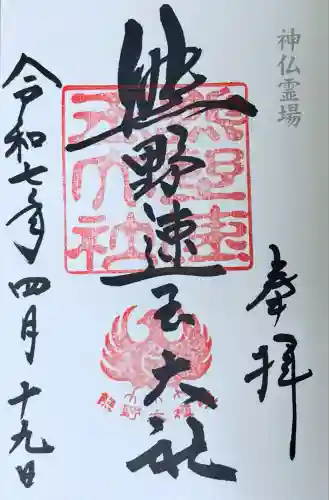 神仏霊場
奉拝
熊野速玉大社
令和七年四月十九日
熊野速玉大社